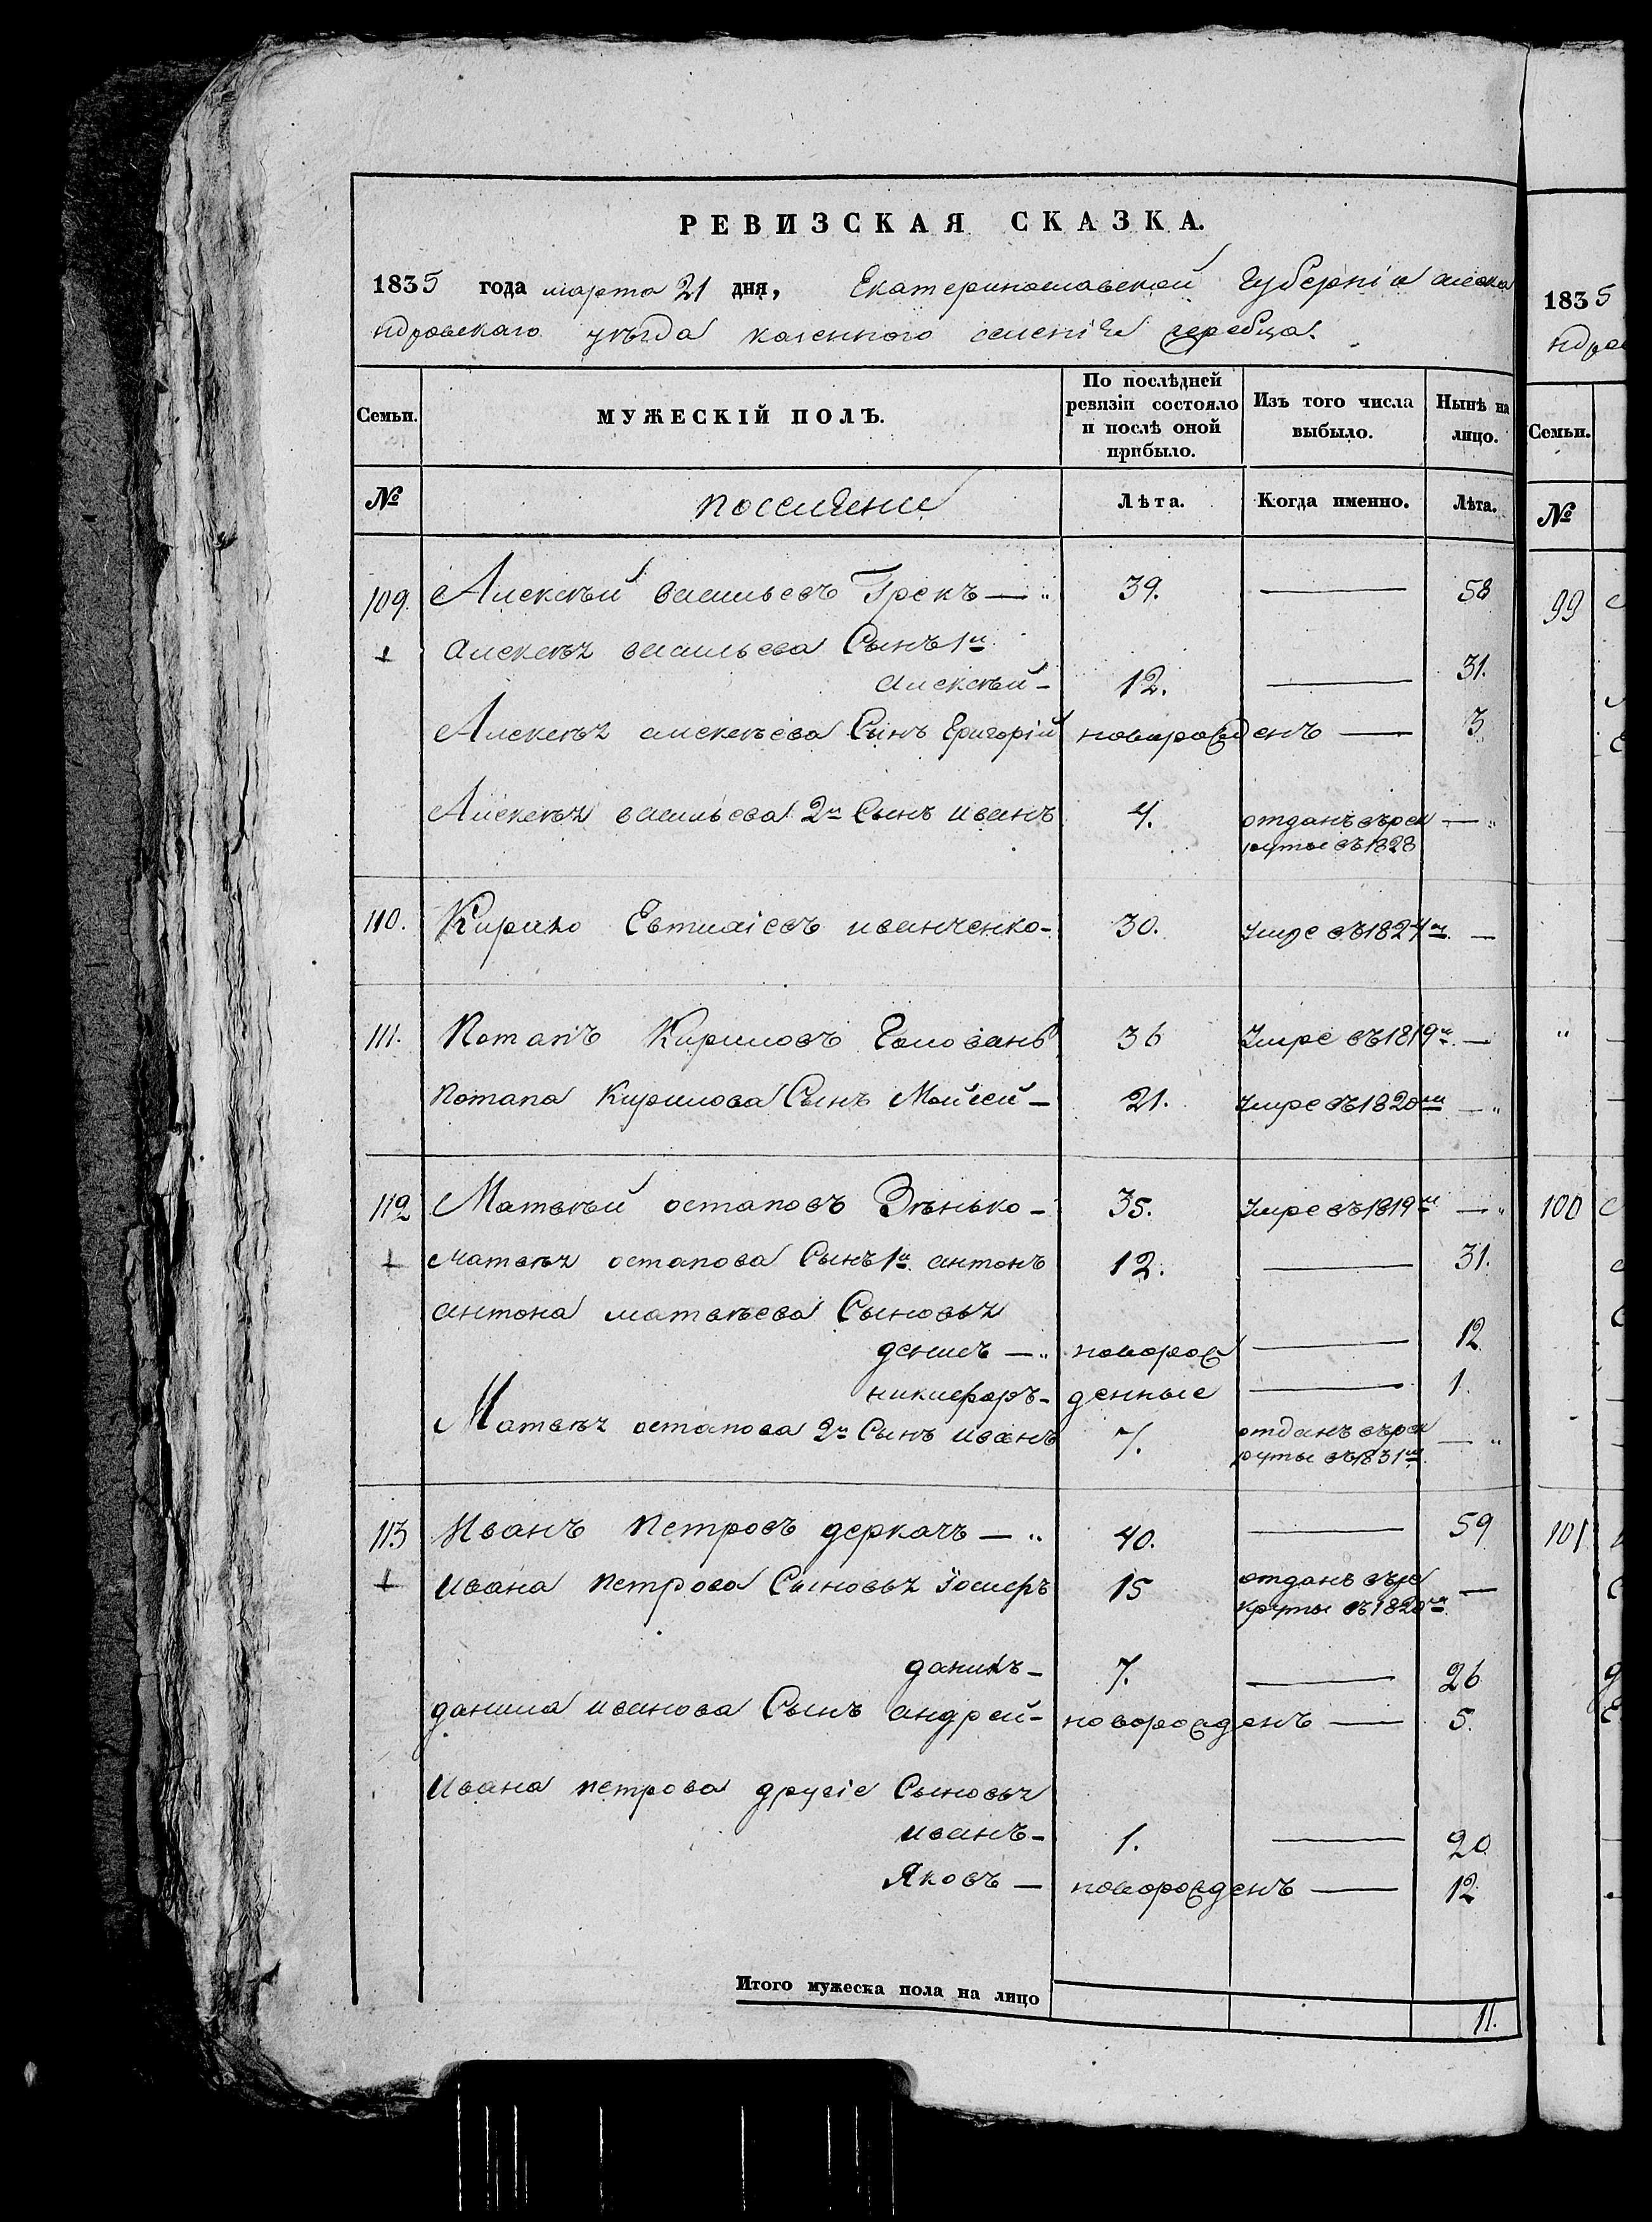 РЕВИЗСКАЯ СКАЗКА.
1835 года марта 21 дня, Екатеринославской Губерніи алекса
ндровскаго уезда казенного селенія жеребца.
Семьи. МУЖЕСКІЙ ПОЛЪ. По послѣдней ревизіи состояло и послѣ оной прибыло. Изъ того числа выбыло. Нынѣ на лицо.
№ поселяне Лѣта. Когда именно. Лѣта.
109. Алексѣй васильевъ Грекъ — 39. — 58
+ алексѣя васильева Сынъ 1й
алексѣй — 12. — 31.
Алексѣя алексѣева Сынъ Григорій новорожденъ — 3
Алексѣя васильева 2й Сынъ иванъ 4. отданъ въ рек —
руты въ 1828
110. Кирило Евтиѳіевъ иванченко — 30. умре въ 1827м —
111. Потапъ Кириловъ Голованъ 36 Умре въ 1819м —
Потапа Кирилова Сынъ Мойсей — 21. умре въ 1820м —
112 Матвѣй остаповъ Зѣнько — 35. умре въ 1819м —
+ матвѣя остапова Сынъ 1й антонъ 12. — 31.
антона матвѣева Сыновья
денисъ — новорож — 12
никифоръ — денные — 1.
Матвѣя остапова 2й Сынъ иванъ 7. отданъ въ рек —
руты въ 1831м
113 Иванъ Петровъ деркачъ — 40. — 59
+ ивана Петрова Сыновья Іосифъ 15 отданъ въ ре —
круты въ 1820м
данило — 7. — 26
данила иванова Сынъ андрей — новорожденъ — 5.
Ивана петрова другіе Сыновья
иванъ — 1. — 20
Яковъ — новорожденъ — 12
Итого мужеска пола на лицо 11.
1835
ндров
Семьи.
№
99
"
100
101